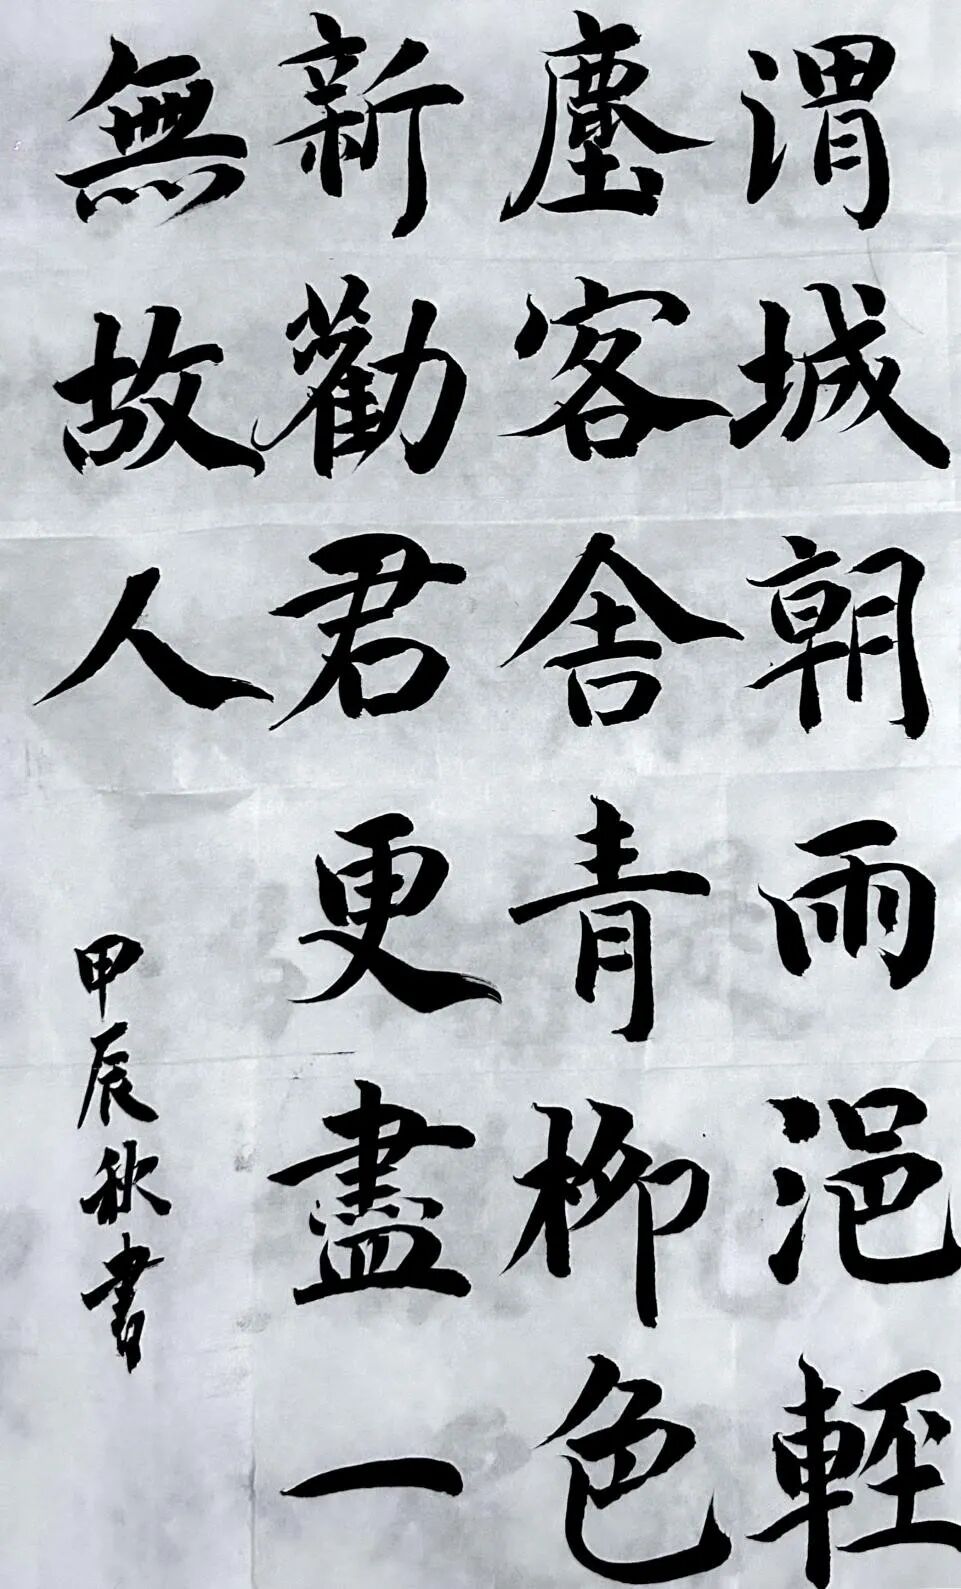 渭城朝雨浥輕
塵客舍青柳色
新勸君更盡一
無故人
甲辰秋書